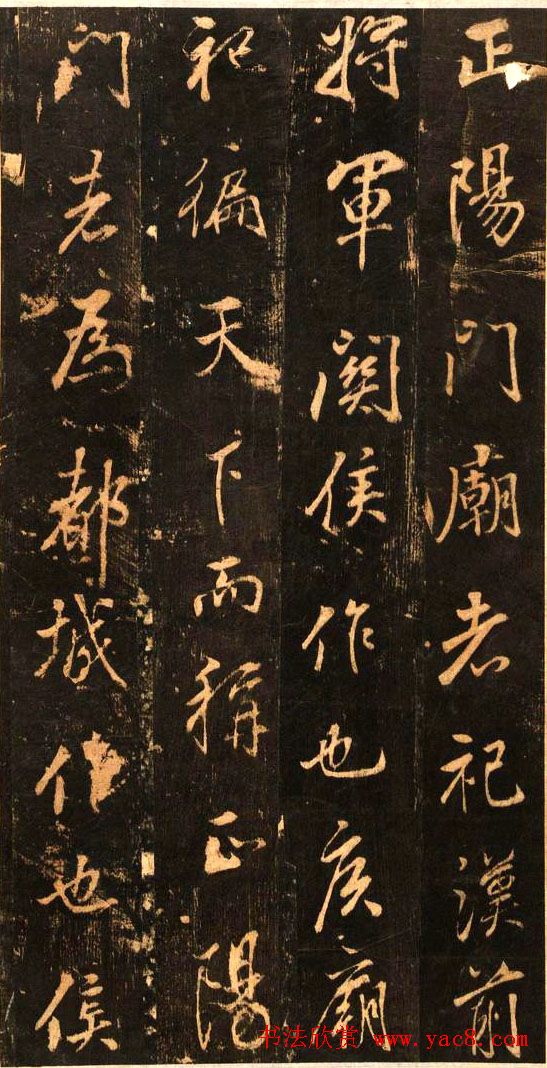 正陽門廟者祀漢前
將軍關侯作也侯廟
祀徧天下而稱正陽
門者為都城作也侯
书法欣赏 www.yac8.com